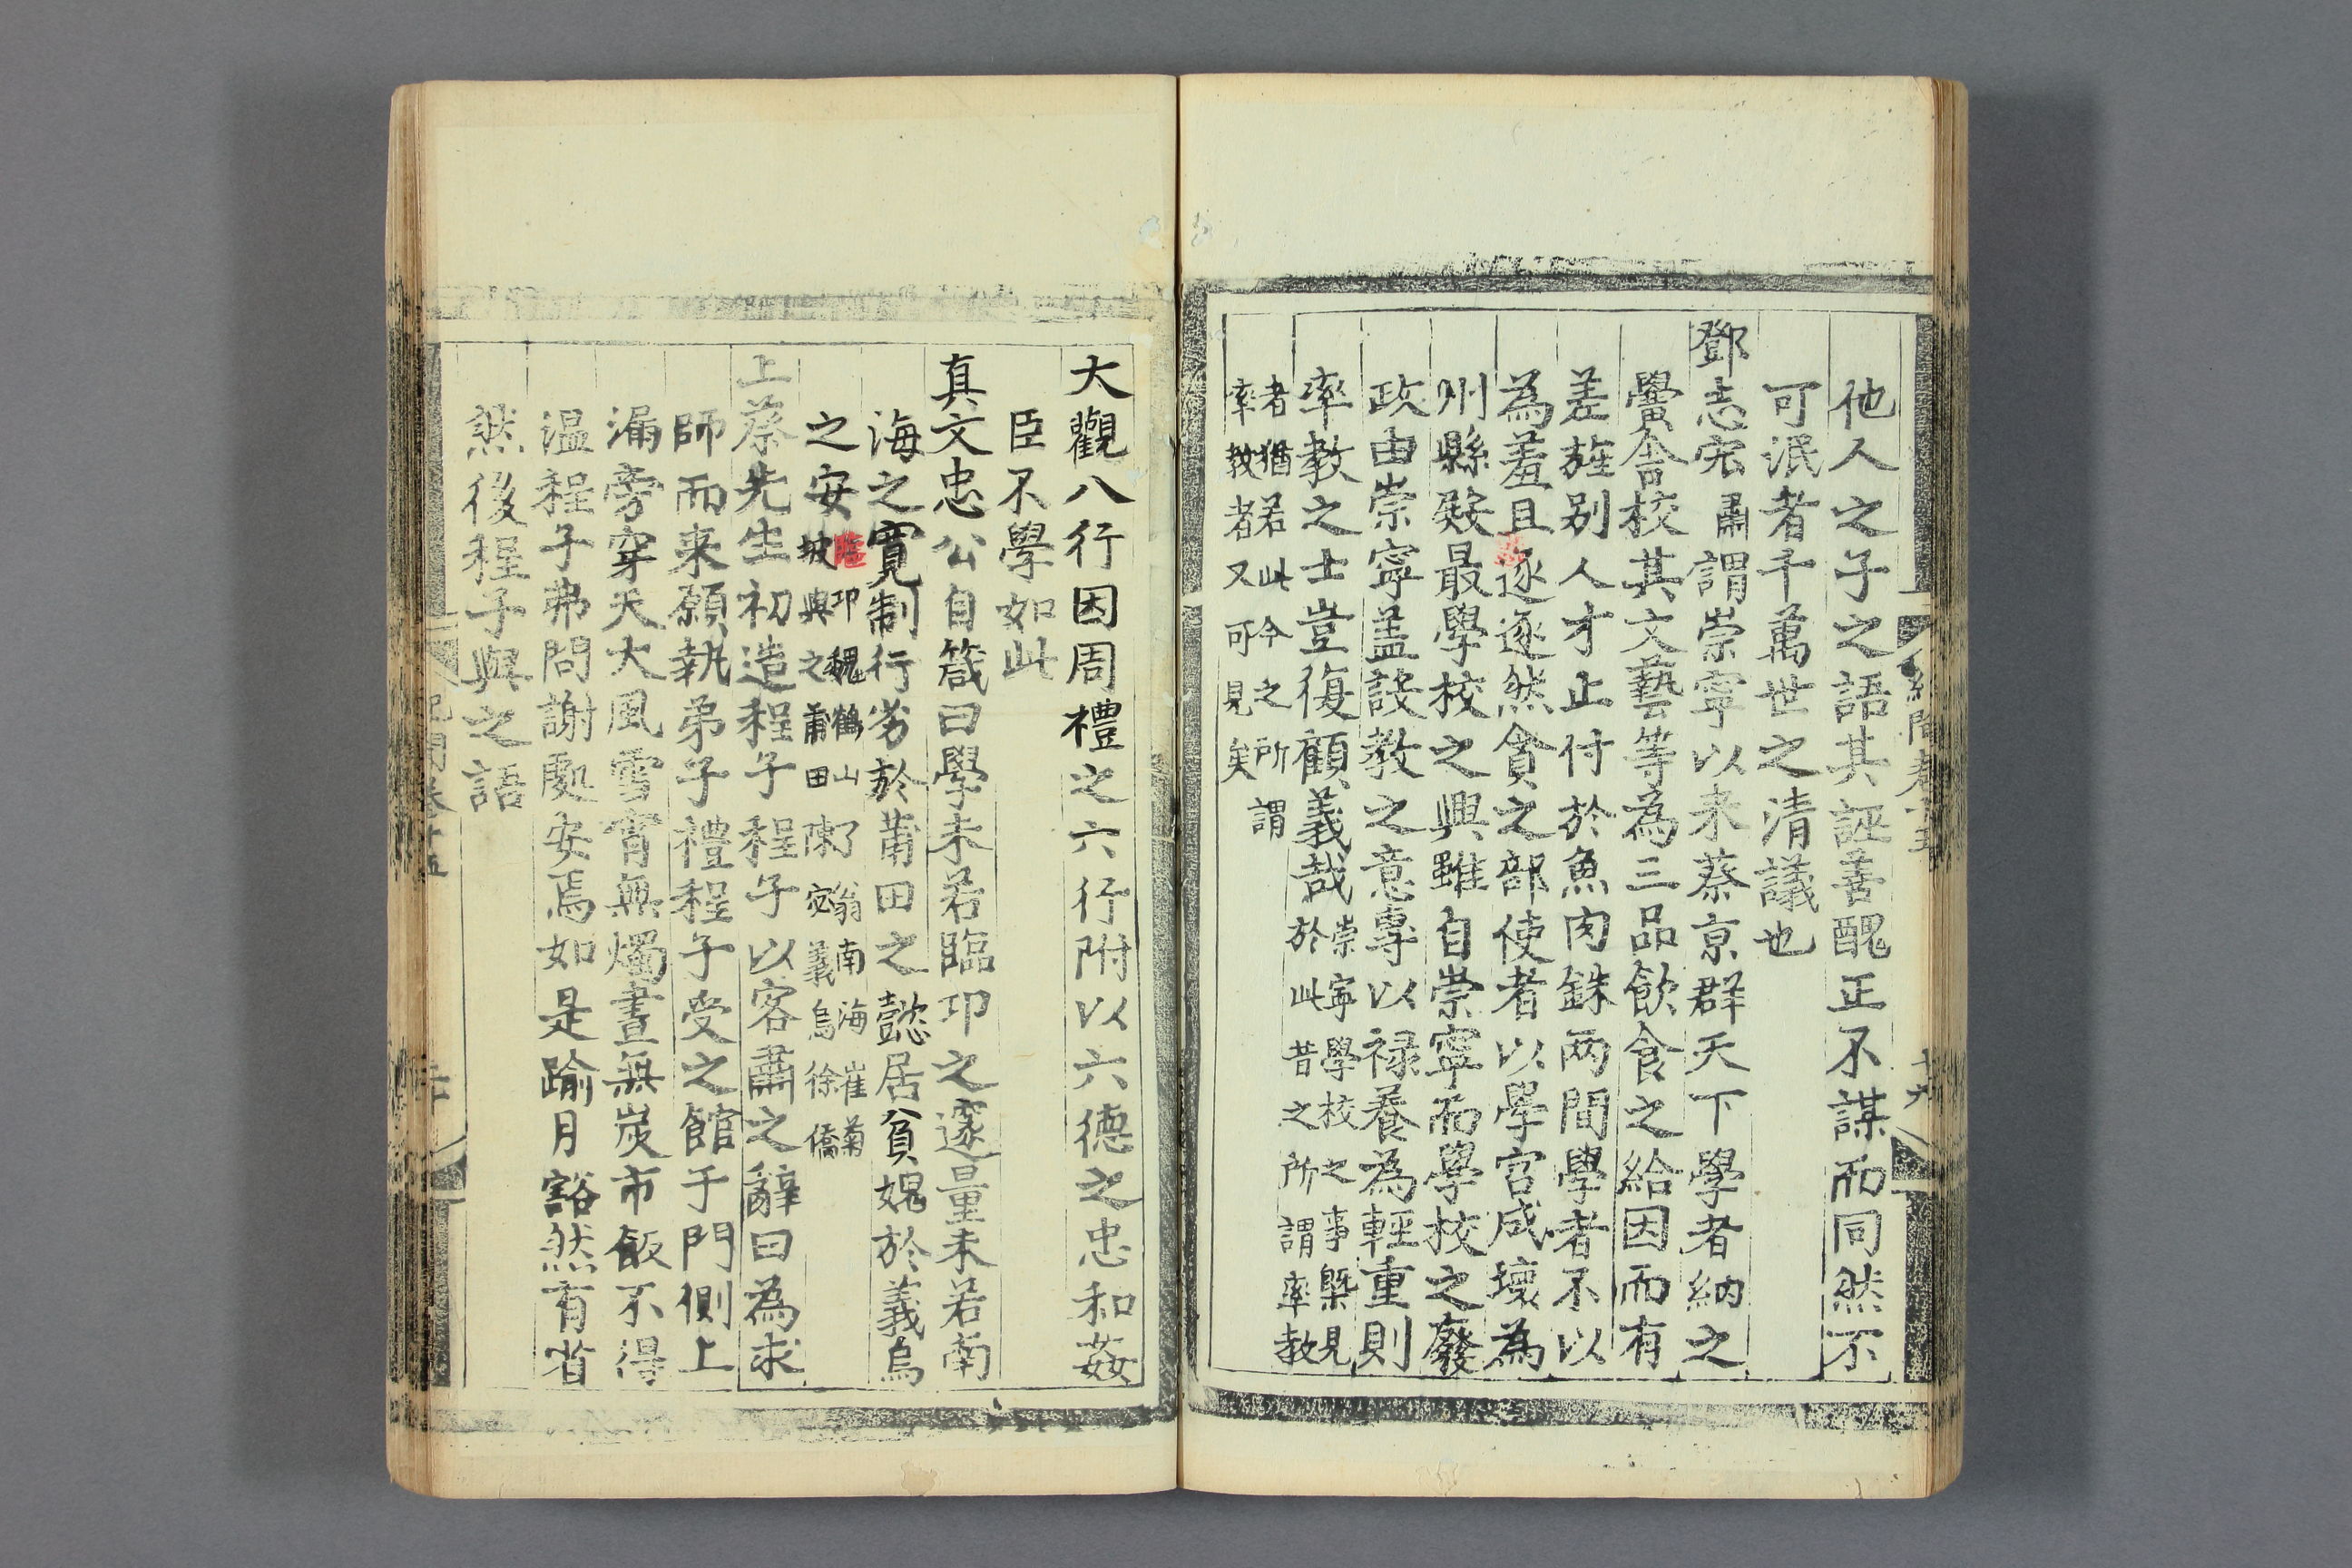 他人之子之語其誣善醜正不謀而同然不
可泯者千萬世之清議也
鄧志宏肅謂崇寧以来蔡京群天下學者納之
黌舍校其文藝等為三品飲食之給因而有
差旌别人才止付於魚肉銖两間學者不以
為羞且逐逐然貪之部使者以學宫成壞為
州縣殿最學校之興雖自崇寧而學校之廢
政由崇寧盖設教之意專以禄養為輕重則
率教之士豈復顧義哉
崇寧學校之事槩見
於此昔之所謂率教
者猶若此今之所謂
率教者又可見矣
紀聞卷十五
十九
大觀八行因周禮之六行附以六德之忠和姦
臣不學如此
真文忠公自箴曰學未若臨邛之邃量未若南
海之寛制行劣於莆田之懿居貧媿於義烏
之安
臨邛魏鶴山了翁南海崔菊
坡與之莆田陳宓義烏徐僑
上蔡先生初造程子程子以客肅之辭曰為求
師而来願執弟子禮程子受之館于門側上
漏旁穿天大風雪宵無燭晝無炭市飯不得
温程子弗問謝處安焉如是踰月豁然有省
然後程子與之語
紀聞卷十五
二十